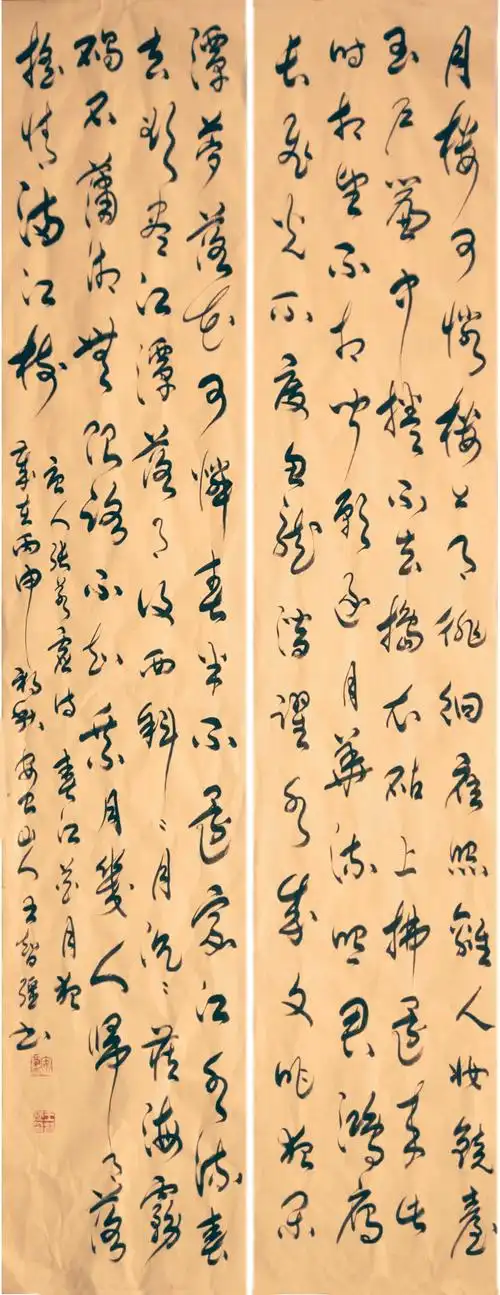 月樓可憐樓上月徘徊應照離人妝鏡臺
玉戶簾中捲不去搗衣砧上拂還來此
時相望不相聞願逐月華流照君鴻雁
長飛光不度魚龍潛躍水成文昨夜閑
潭夢落花可憐春半不還家江水流春
去欲盡江潭落月復西斜〻月沉〻藏海霧
碣石瀟湘無限路不知乘月幾人歸月落
搖情滿江樹
唐人張若虛詩春江花月夜
歲在丙申初秋山人王智疆書